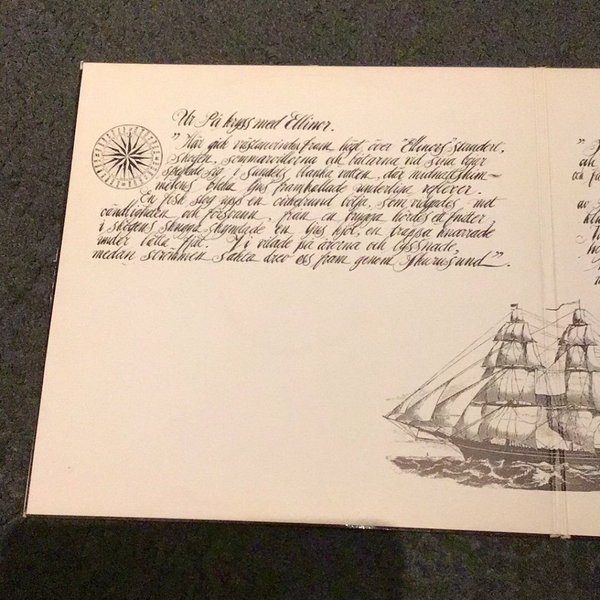 Ur På kryss med Ellinor.
"Här gick vågsvinden fram högt över "Ellinors" standert.
Skogen, sommarvillorna och båtarna vid sina bojar
speglade sig i sundets blanka vatten, där midnattshim-
melens bleka ljus framkallade underliga reflexer.
En fisk slog upp en cirkelrund bölja, som vidgades mot
oändligheten och försvann, från en brygga hördes ett fnitter,
i skogens skymde en ljus kjol, en brygga knarrade
under lätta fjät. Vi vilade på årorna och lyssnade,
medan strömmen sakta drev oss fram genom Skurusund".
och
av